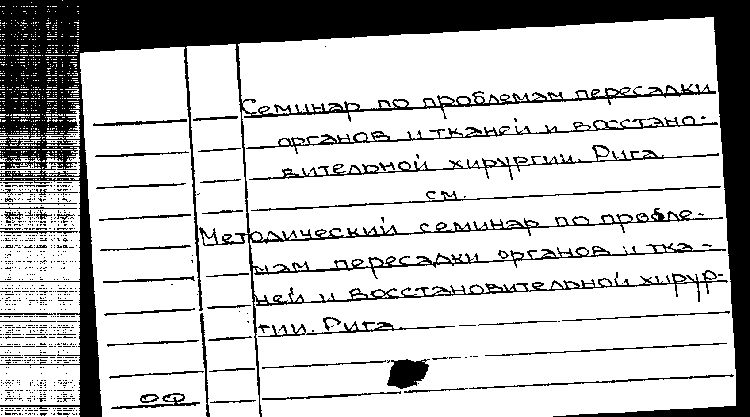 Семинар по проблемам пересадки
органов и тканей и восстано-
вительной хирургии. Рига
см.
Методический семинар по пробле-
мам пересадки органов и тка-
ней и восстановительной хирур-
гии. Рига.
ОФ